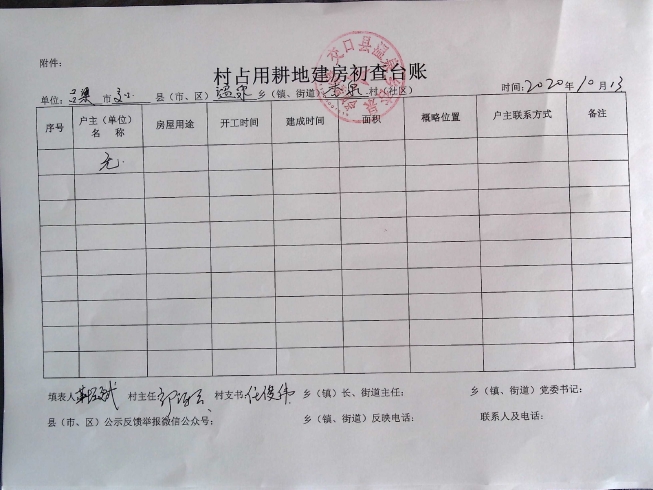 附件:
村占用耕地建房初查台账
单位: 吕梁 市 交口 县(市、区) 温泉 乡(镇、街道) 村(社区) 时间: 2020年10月13
序号 户主(单位)名 称 房屋用途 开工时间 建成时间 面积 概略位置 户主联系方式 备注
无.
填表人: 村主任: 村支书: 任俊伟 乡(镇)长、街道主任: 乡(镇、街道)党委书记:
县(市、区)公示反馈举报微信公众号: 乡(镇、街道)反映电话: 联系人及电话:
交口县温泉